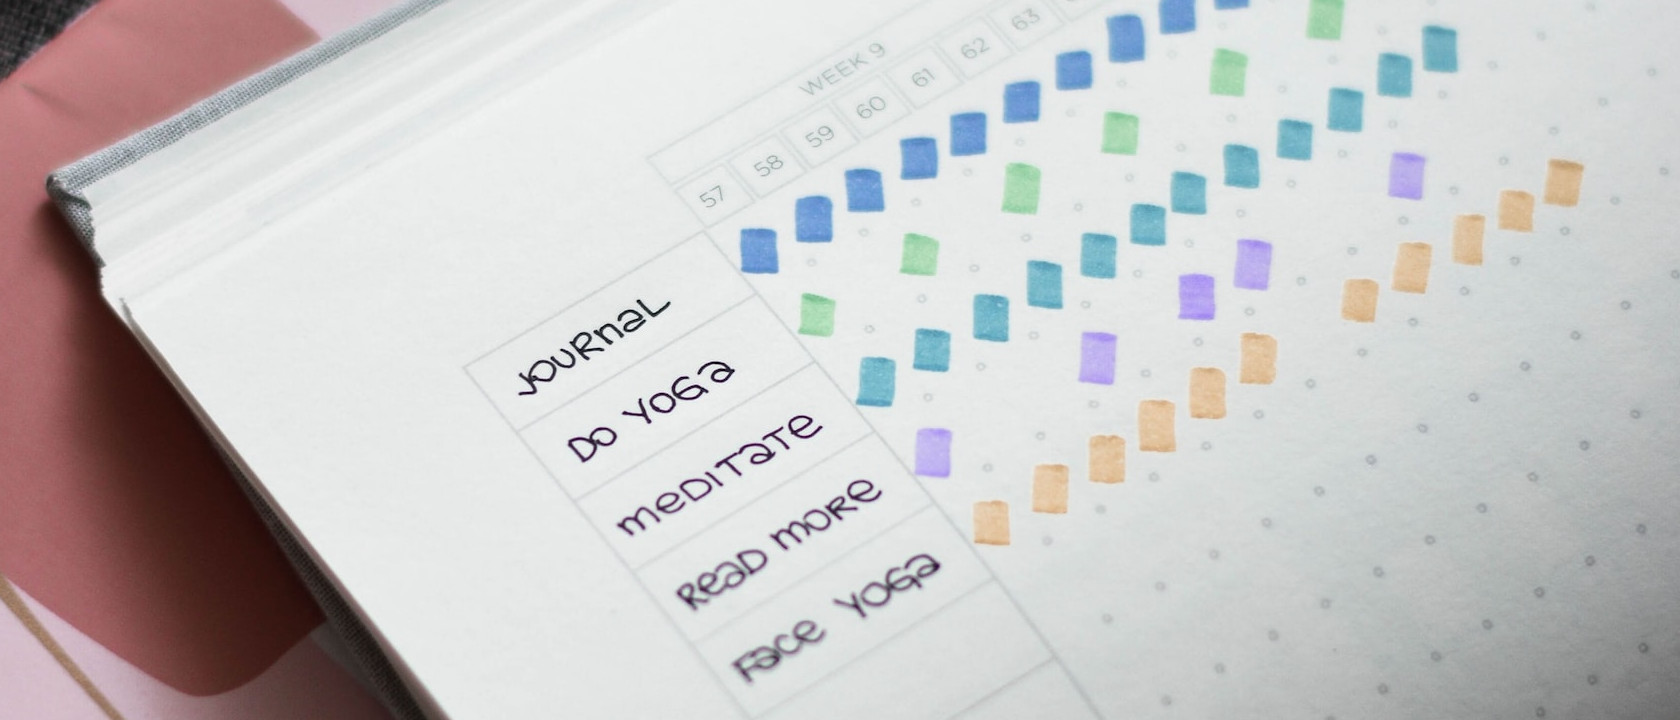 WEEK 9
57 58 59 60 61 62 63
JOURNAL
DO YOGA
MEDITATE
READ MORE
FACE YOGA